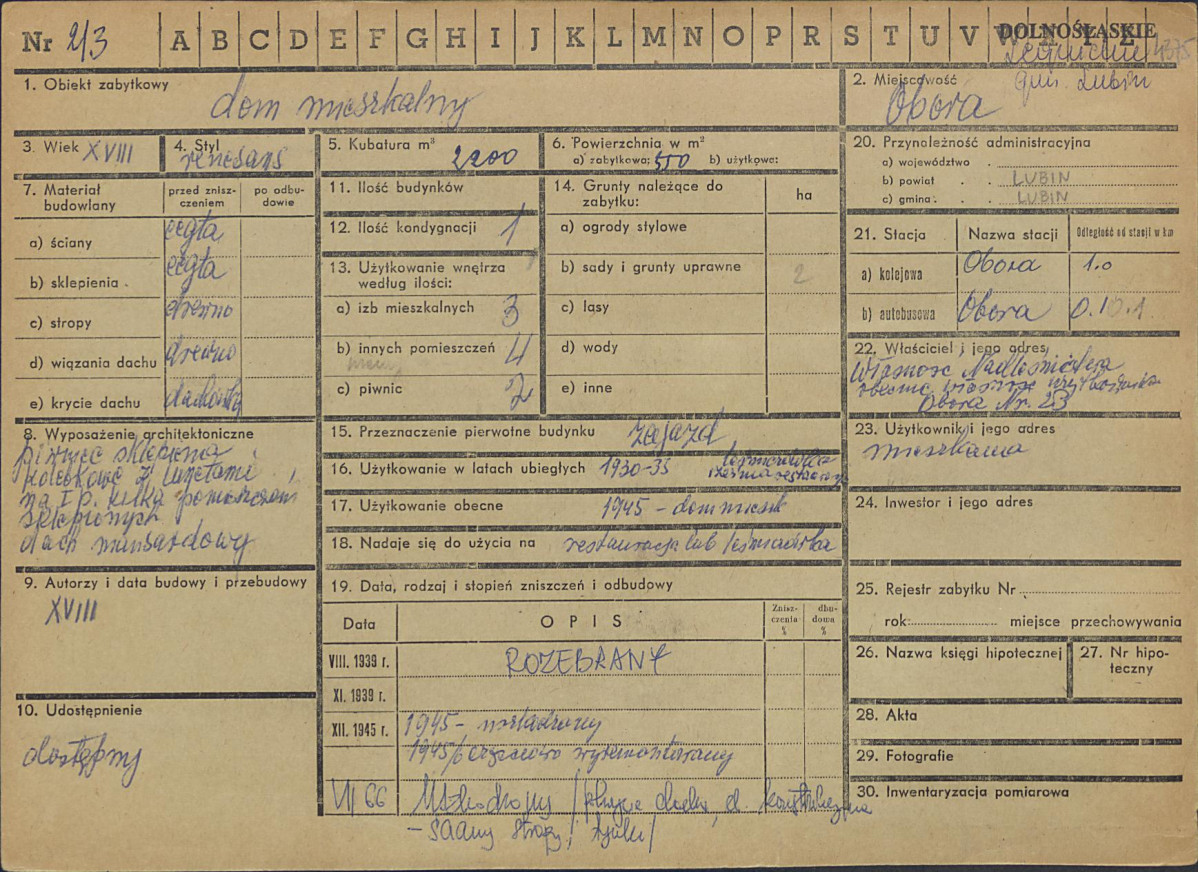 Nr 213
A B C D E F G H I J K L M N O P R S T U V W
DOLNOŚLĄSKIE
4375
gm. Lubin
1. Obiekt zabytkowy
dom mieszkalny
2. Miejscowość
Obora
3. Wiek XVIII
4. Styl
renesans
5. Kubatura m³
2200
6. Powierzchnia w m²
a) zabytkowa: 550 b) użytkowe:
7. Materiał budowlany
przed zniszczeniem
po odbudowie
a) ściany cegła
b) sklepienia cegła
c) stropy drewno
d) wiązania dachu drewno
e) krycie dachu dachówka
8. Wyposażenie architektoniczne
piwnice sklepione
kolebkowe z lunetami,
na I p. kilka pomieszczeń
sklepionych
dach mansardowy
9. Autorzy i data budowy i przebudowy
XVIII
10. Udostępnienie
dostępny
11. Ilość budynków
12. Ilość kondygnacji 1
13. Użytkowanie wnętrza
według ilości:
a) izb mieszkalnych 3
b) innych pomieszczeń 4
c) piwnic 2
14. Grunty należące do
zabytku:
ha
a) ogrody stylowe
b) sady i grunty uprawne 2
c) lasy
d) wody
e) inne
15. Przeznaczenie pierwotne budynku zajazd
16. Użytkowanie w latach ubiegłych 1930-35 leśniczówka
17. Użytkowanie obecne 1945 - dom mieszk
18. Nadaje się do użycia na restauracja lub leśniczówka
19. Data, rodzaj i stopień zniszczeń i odbudowy
Data
OPIS
Zniszczenia %
dbudowa %
VIII. 1939 r. ROZEBRANY
XI. 1939 r.
XII. 1945 r. 1945 -
częściowo wyremontowany
VI 66 Uszkodzony / pokrycie dachu, el. konstrukcyjne
- ściany stropy, tynki /
20. Przynależność administracyjna
a) województwo
b) powiat LUBIN
c) gmina: LUBIN
21. Stacja
Nazwa stacji
Odległość od stacji w km
a) kolejowa Obora 1.0
b) autobusowa Obora 0.1 0.1
22. Właściciel i jego adres
Własność Nadleśnictwa
obecnie własność
Obora Nr. 23
23. Użytkownik i jego adres
mieszkania
24. Inwestor i jego adres
25. Rejestr zabytku Nr
rok: miejsce przechowywania
26. Nazwa księgi hipotecznej
27. Nr hipoteczny
28. Akta
29. Fotografie
30. Inwentaryzacja pomiarowa